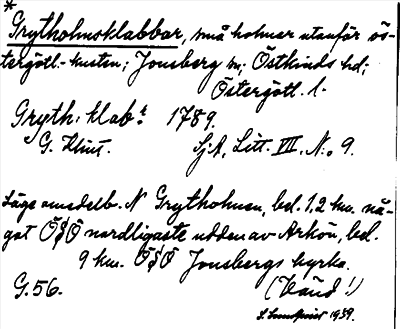 *
Grytholmsklabbar, små holmar utanför ös-
tergötl.-kusten; Jonsberg sn; Östkinds hd;
Östergötl. l.
Gryth: klab:r 1789.
G. Klint. SjA, Litt. VII, N:o 9.
Läge omedelb. N Grytholmen, bel. 1,2 km. nå-
got ÖSÖ nordligaste udden av Arkön, bel.
9 km. ÖSÖ Jonsbergs kyrka.
G.56. (Känd!)
1939.